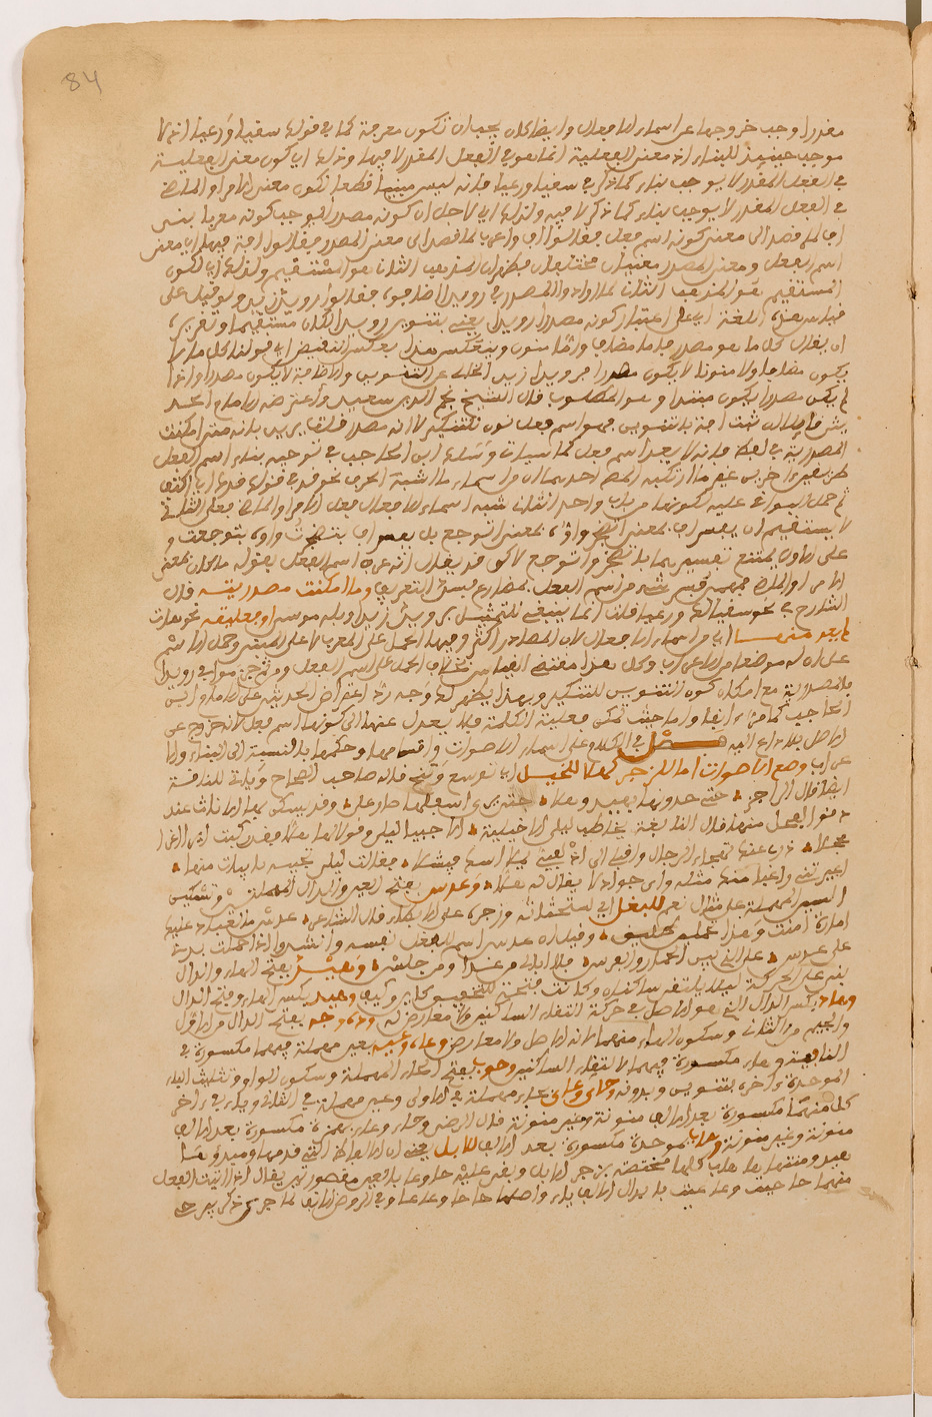 84
مقدرا وجب خروجها عن اسماء الافعال وايضا كان يجب ان تكون معرفة كما في قولك سقيا ورعيا اذ لا
موجب حينئذ للبناء اذ معنى الفعلية انما هو في الفعل المقدر لا فيها وذلك اي كون معنى الفعلية
في الفعل المقدر لا يوجب بناء كما ذكر في سقيا ورعيا فانه ليس مبنيا قطعا لكون معنى الامر او الماضي
في الفعل المقدر لا يوجب بناء كما ذكر لا فيه ولذلك اي لاجل ان كونه مصدرا يوجب كونه معربا بنى
اف لما قصد الى معنى كونه اسم فعل فقالوا اف واعرب لما قصد الى معنى المصدر فقالوا افة فيهما اي معنى
اسم الفعل ومعنى المصدر معنيان مختلفان فظهر ان المذهب الثاني هو المستقيم ولذلك اي لكون
المستقيم هو المذهب الثاني لا الاول والمصدر في رويدا فقالوا رويد زيد وقيل على
قياس هذه اللغة اي على اعتبار كونه مصدرا رويدا يعني بتنوين رويدا لكان مستقيما وتقريره
ان يقال كل ما هو مصدر فاما مضاف واما منون وينعكس هذا بعكس النقيض الى قولنا كل ما لا
يكون مضافا ولا منونا لا يكون مصدرا فرويد زيدا الخالي عن التنوين والاضافة لا يكون مصدرا واذا
لم يكن مصدرا يكون مبنيا وهو المطلوب قال الشيخ نجم الدين سعيد واعترضه الامام الحد
بلا تنوين فهو اسم فعل نون للتنكير لا انه مصدر قلت يريد بانه متى امكنت
المصدرية في لفظ فانه لا يعد اسم فعل كما سيأتي وسلك ابن الحاجب في توجيه بناء اسم الفعل
طريقين اخرين
ثم حمل البواقي عليه لكونها من باب واحد الثاني شبه اسماء الافعال فعل الامر او الماضي فعلى الثاني
لا يستقيم ان يفسر اف بمعنى اتضجر واوه بمعنى اتوجع بل يفسر اف بتضجرت واوه بتوجعت و
على الاول يمتنع تفسيرهما باتضجر واتوجع لانه قد يقال انه عرف اسم الفعل بقوله ما كان بمعنى
الامر او الماضي فمهما فسر شيء من اسم الفعل بمضارع فسد التعريف وما امكنت مصدريته قال
الشارح في نحو سقيا لك ورعيا قلت انما ينبغي للتمثيل برويد زيدا وبله موسى او فعليته نحو هات
لم يعد منها اي من اسماء الافعال لان المصادر اكثر وفيها الحمل على المعرب لا على المبنى وحمل الاسم
على ان له موضعا من الاعراب وكل هذا مقتضى القياس بخلاف الحمل على اسم الفعل ومن ثم جزموا في رويدا
بالمصدرية مع امكان كون التنوين للتنكير وبهذا يظهر لك وجه رد اعتراض الحديثي على الامام ابن
الحاجب كما مر انفا واما حيث تمكن فعلية الكلمة فلا يعدل عنها الى كونها اسم فعل لانه خروج عن
الاصل بلا داع اليه فصل في الكلام على اسماء الاصوات واقسامها وحكمها بالنسبة الى البناء والا
عراب وضع الاصوات اما لزجر كهلا للخيل اي توسع وتنح قال صاحب الصحاح ويقال للناقة
ايضا قال الراجز • حتى حدوناها بهيد وهلا • حتى يرى اسفلها صار علا • وقد يسكن بها الاناث عند
دنو الفحل منها قال النابغة يخاطب ليلى الاخيلية • الا حييا ليلى وقولا لها هلا • فقد ركبت امرا اغر
محجلا •
اعيرتني داء بامك مثله • واي جواد لا يقال له هلا • وعدس بفتح العين والدال المهملتين وتسكين
السين المهملة على مثال نعم للبغل اي يستحثه وزجره على الابطاء قال الشاعر • عدس ما لعباد عليك
امارة امنت وهذا تحملين طليق • وقيل ان عدس اسم للبغل نفسه وانشدوا اذا حملت بزتي
على عدس • على التي بين الحمار والفرس • فلا ابالي من غزا ومن جلس • وهيد بفتح الهاء والدال
بني على حركة ليلا يلتقي ساكنان وكانت فتحة للتخفيف كاين وكيف وهيد بكسر الهاء وفتح الدال
وهاد بكسر الدال الذي هو الاصل في حركة التقاء الساكنين ولا معارض له وده وجه بفتح الدال من الاول
والجيم من الثاني وسكون الهاء منهما لانه الاصل ولا معارض وعاه وعيه بعين مهملة فيهما مكسورة في
الثانية وهاء مكسورة فيهما لالتقاء الساكنين وحوب بفتح الحاء المهملة وسكون الواو وتثليث الباء
الموحدة اخره بتنوين وبدونه وحاي وعاي بحاء مهملة في الاولى وعين مهملة في الثاني وياء في اخر
كل منهما مكسورة بعد الف منونة وغير منونة قال الرضي وحاء وعاء بهمزة مكسورة بعد الف
منونة وغير منونة وحاب بموحدة مكسورة بعد الالف للابل يعني ان الالفاظ التي قدمها ومبدؤها
هيد ومنتهاها حاب كلها مختصة بزجر الابل وبقي عليه حا وعا بالعين مقصورين يقال اذا ابنيت الفعل
منهما حاحيت وعاعيت بابدال الالف ياء واصلهما حاحا وعاعا وفي الروض الانف لما جرى ذكر بيرحى